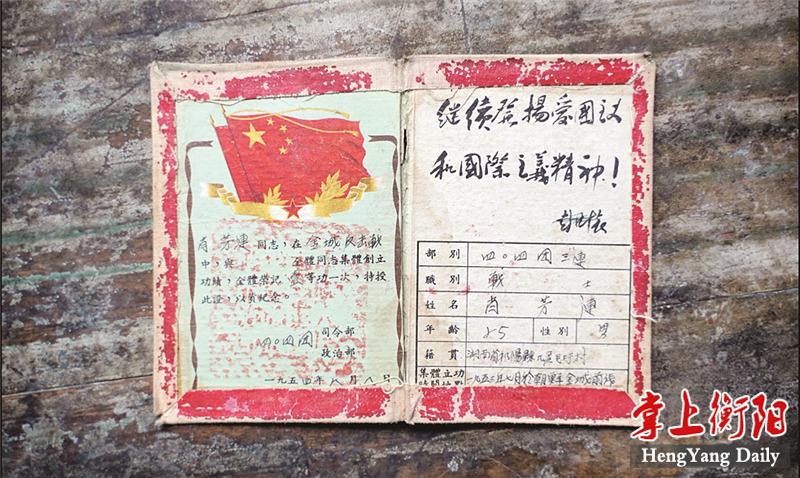 肖芳連同志，在金城反击戰
中，與　　全體同志集體創立
功績，全體榮記叁等功一次，特授
此證，以資紀念。
四〇四团
司令部
政治部
一九五四年八月八日
继续发揚爱国主义
和國際主義精神！
彭德怀
部別 四〇四团三連
職別 戰士
姓名 肖芳連
年齡 25 性別 男
籍貫 湖南省祁陽縣
集體立功
時間地點 一九五三年七月於朝鮮金城前線
掌上衡阳
HengYang Daily